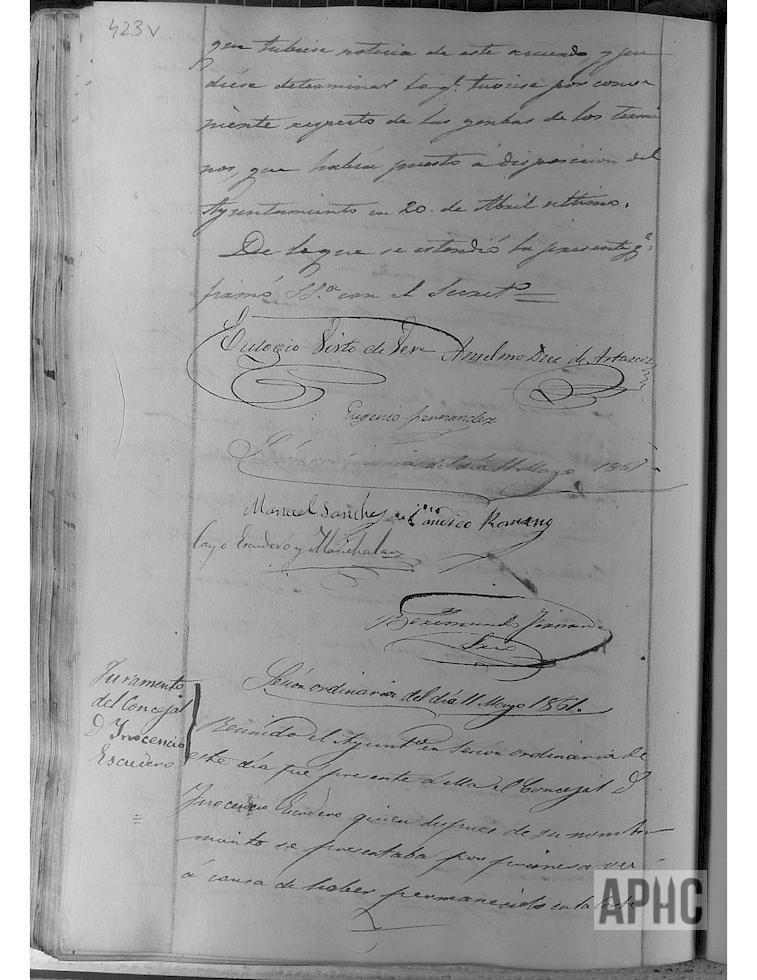 423v
que tubiese noticia de este acuerdo, y pu
diese determinar lo qe. tuviese por conve
niente respecto de las yerbas de los termi
nos, que habia puesto á disposicion del
Ayuntamiento en 20. de Abril ultimo.
De lo que se estendió la presente qe.
firmó SSª. con el Secretº
Eulogio Visto de Vera Anselmo Diez de Artazcoz
Eugenio Fernandez
Sesion ordinaria del dia 11 Mayo 1861.
Manuel Sanchez Candido Romano
Cayo Escudero y Marichalar
Beremundo Fernan
Srio
Juramento
del Concejal
D Inocencio
Escudero
Sesion ordinaria del dia 11 Mayo 1861.
Reunido el Ayuntº. en sesion ordinaria de
este dia fue presente á ella el Concejal D
Inocencio Escudero quien despues de su nombra
miento se presentaba por primera vez
á causa de haber permanecido en la Corte
APHC